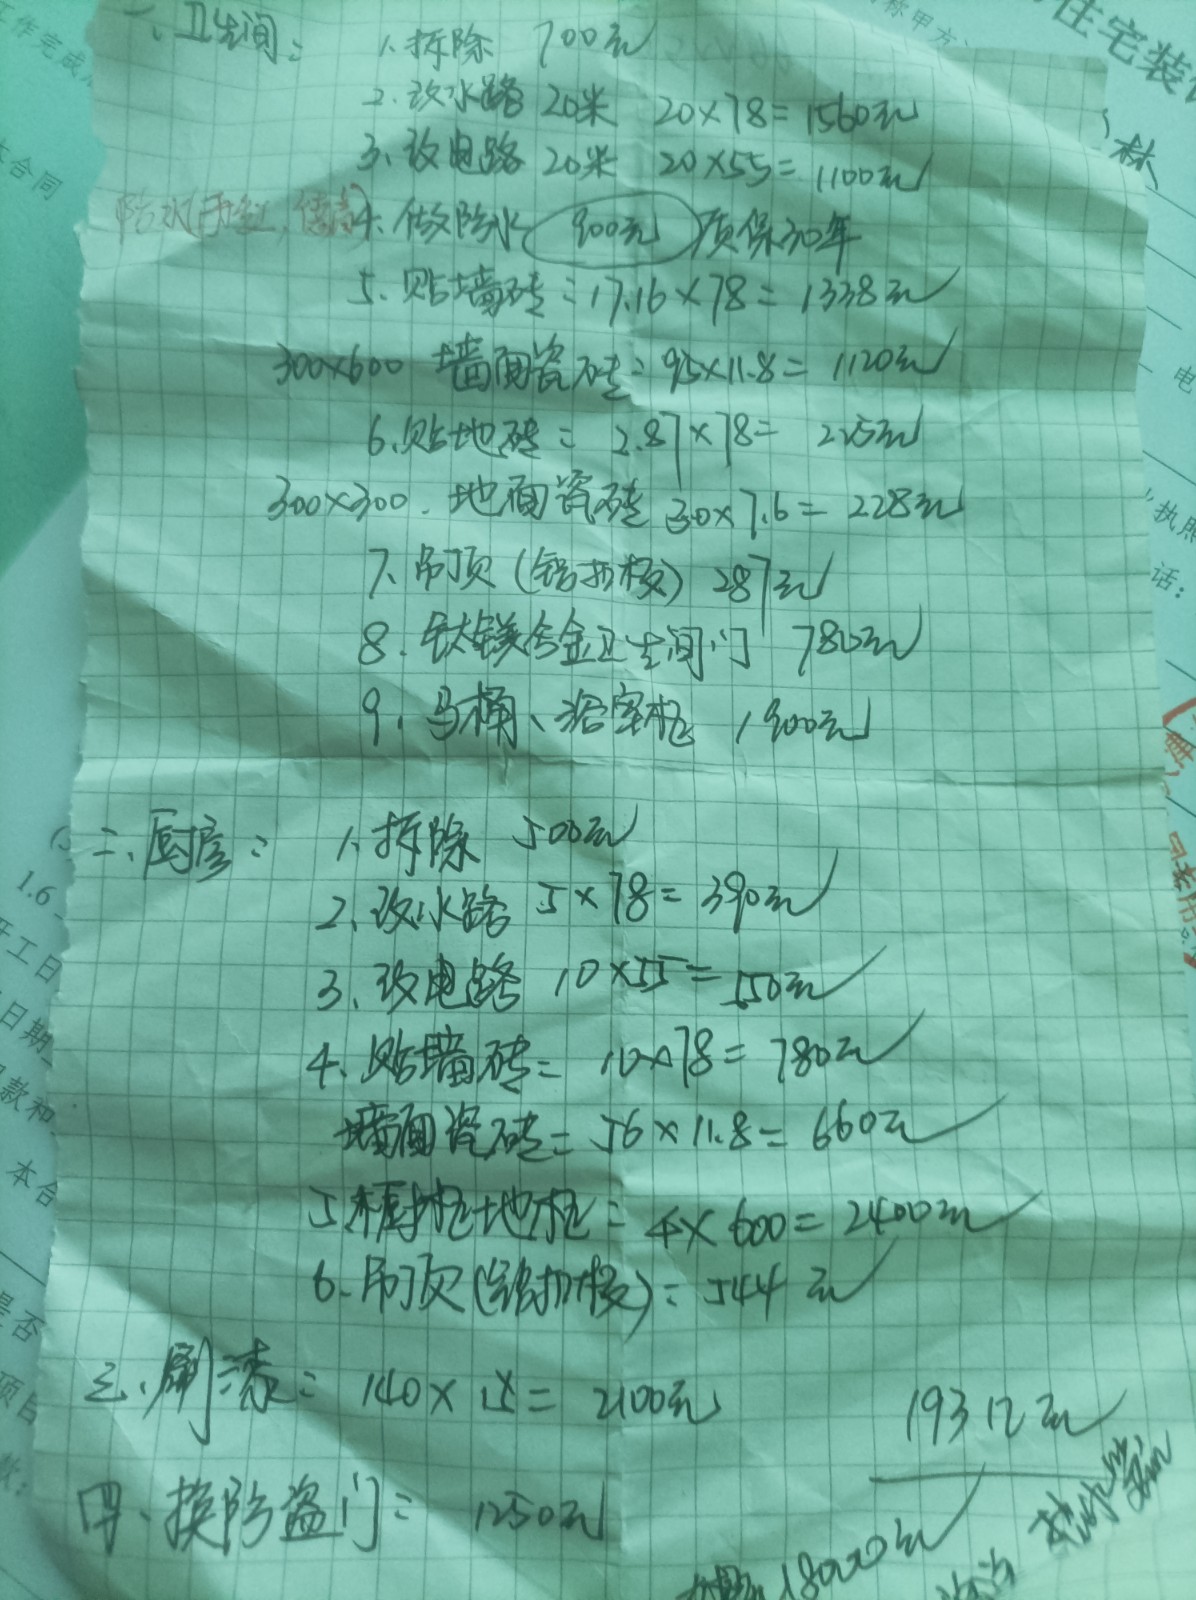 一、卫生间： 1、拆除 700元
2、改水路 20米 20×78=1560元
3、改电路 20米 20×55=1100元
4、做防水 900元 质保30年
5、贴墙砖=17.16×78=1338元
300×600 墙面瓷砖=95×11.8=1120元
6、贴地砖= 2.87×78= 225元
300×300. 地面瓷砖 30×7.6=228元
7、吊顶(铝扣板) 287元
8.钛镁合金卫生间门 780元
9、马桶、浴室柜 1900元
二、厨房： 1、拆除 500元
2、改水路 5×78=390元
3、改电路 10×55=550元
4、贴墙砖= 10×78=780元
墙面瓷砖=56×11.8=660元
5橱柜地柜=4×600=2400元
6.吊顶(铝扣板)=544元
三、刷漆= 140×15=2100元
19312元
四、换防盗门= 1250元
18000元
住宅装
林
称甲方
作完成
本合同
电
执照
话：
1.6
开工日
日期
款和
本合
是否
项目
款：